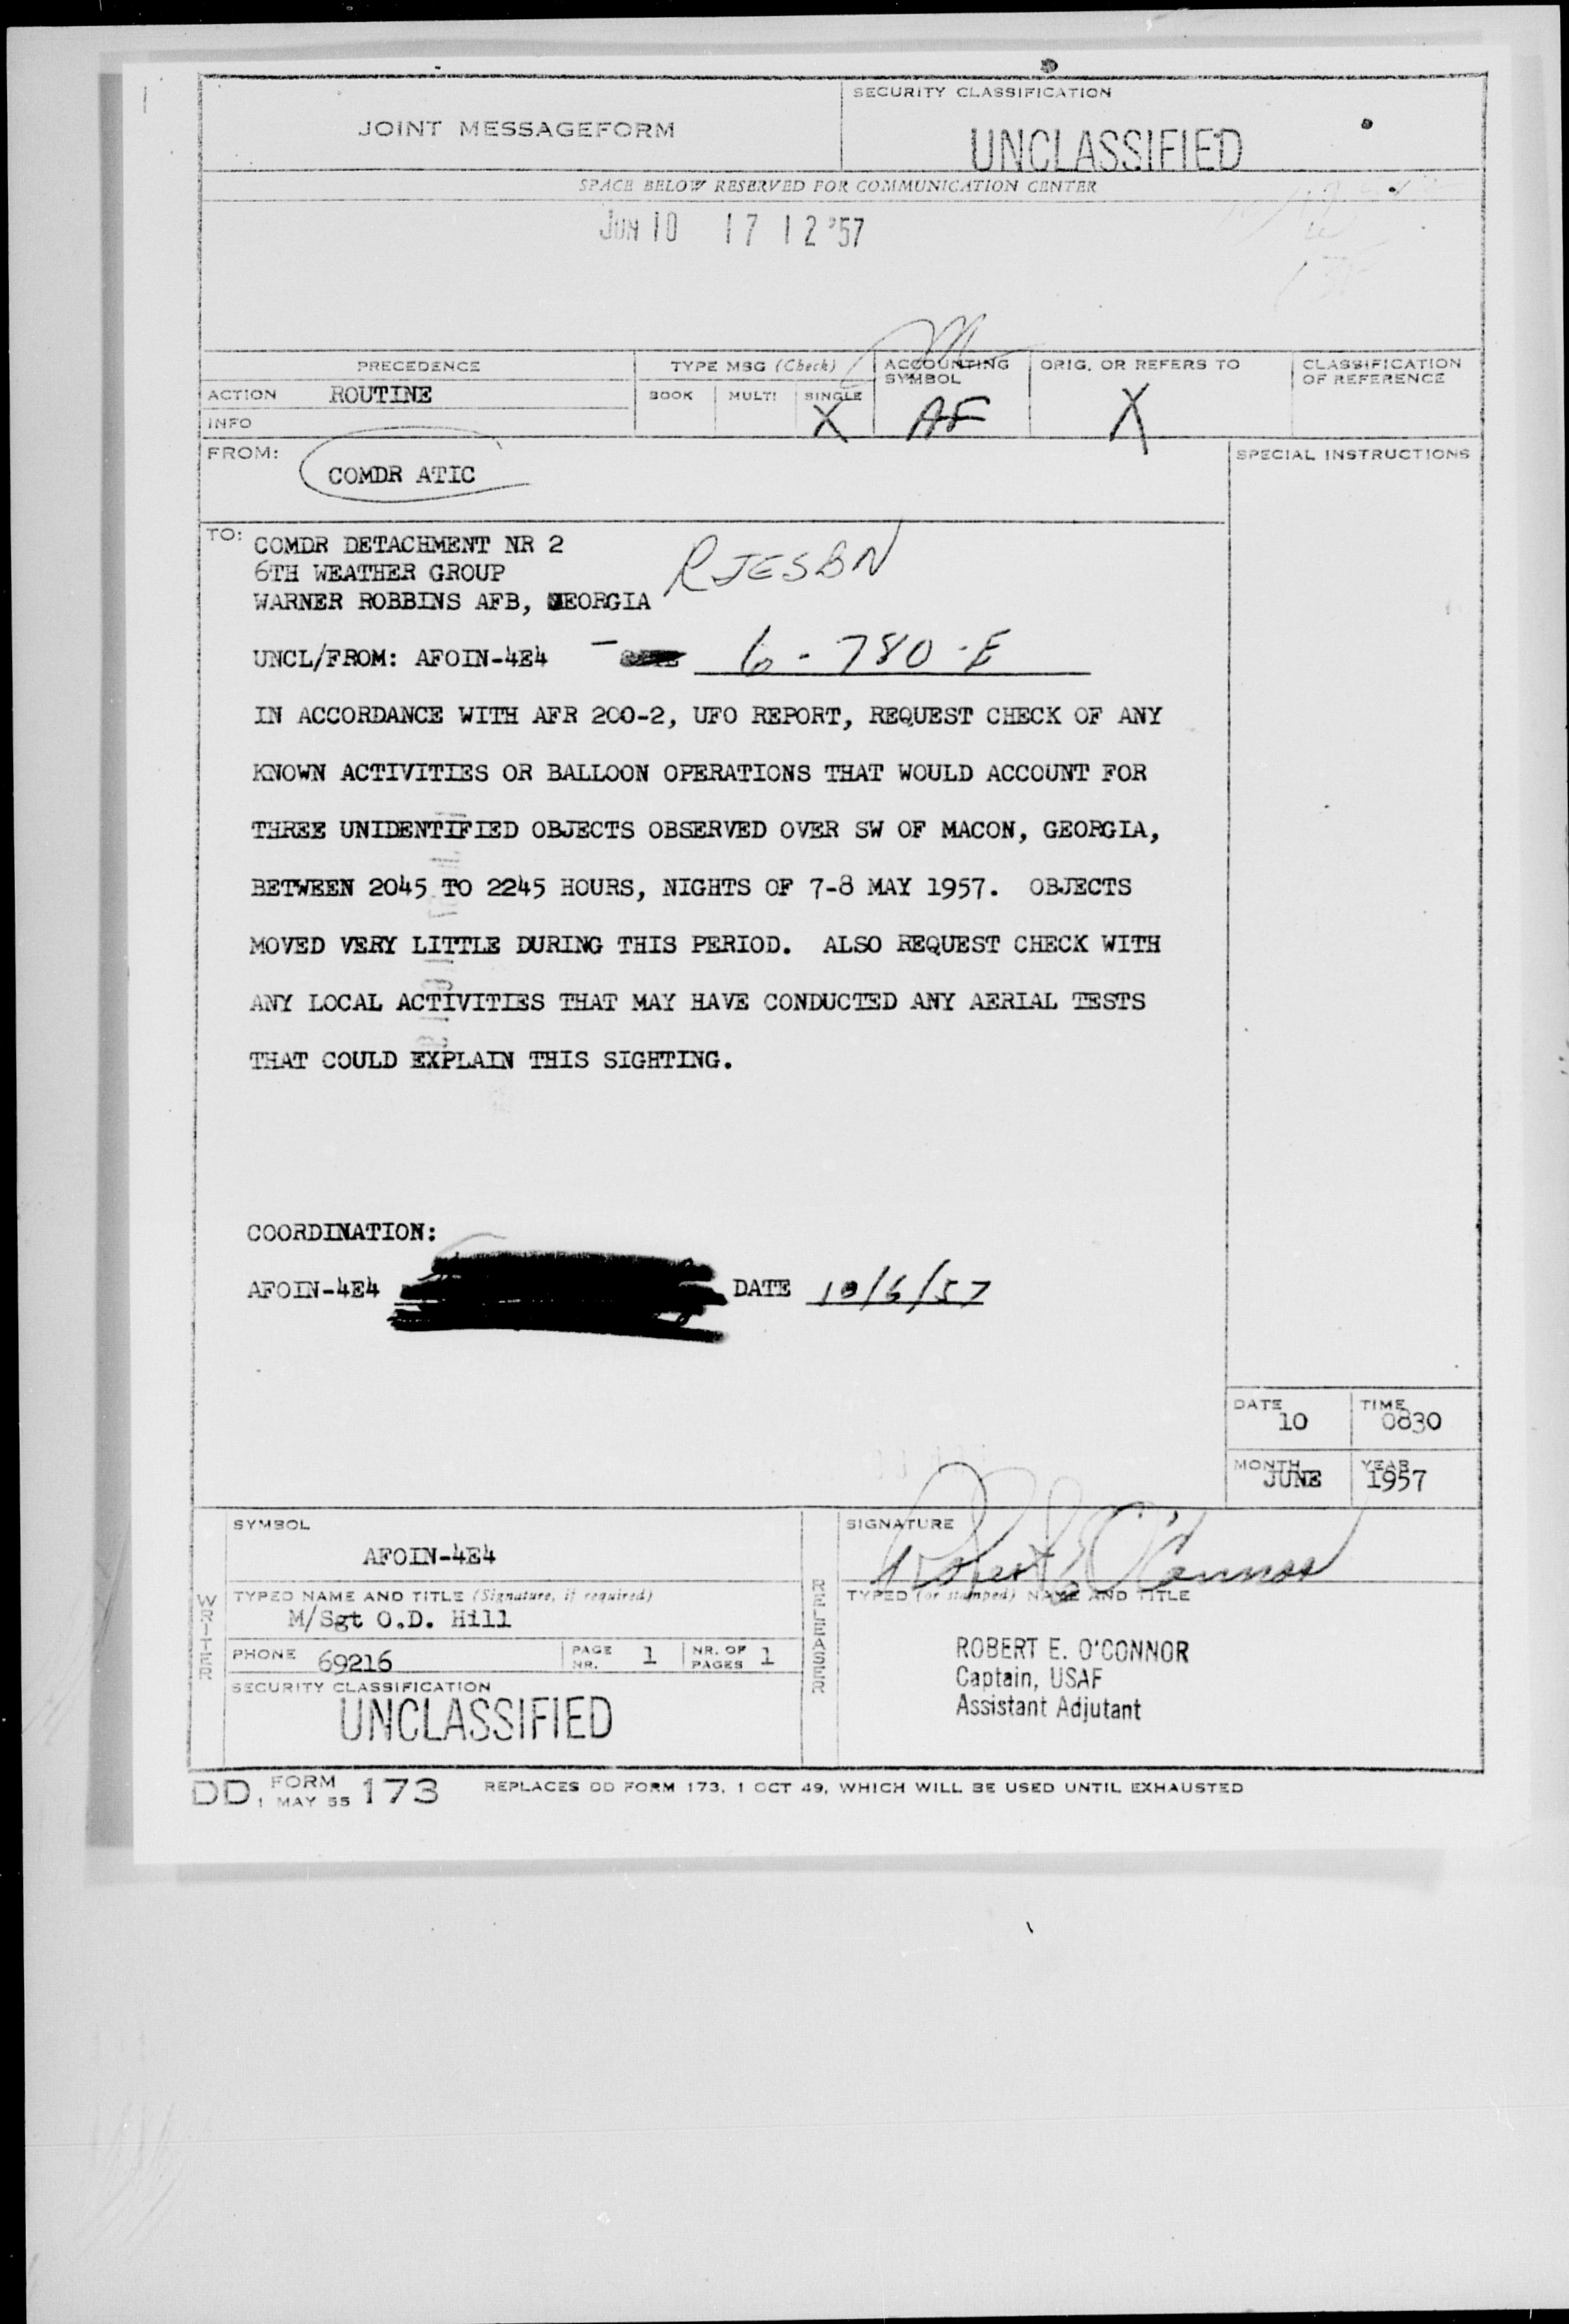 JOINT MESSAGEFORM
SECURITY CLASSIFICATION
UNCLASSIFIED
SPACE BELOW RESERVED FOR COMMUNICATION CENTER
JUN 10 17 12 '57
PRECEDENCE
TYPE MSG (Check)
ACCOUNTING SYMBOL
ORIG. OR REFERS TO
CLASSIFICATION OF REFERENCE
ACTION ROUTINE
BOOK MULTI SINGLE
X AF X
INFO
FROM:
COMDR ATIC
SPECIAL INSTRUCTIONS
TO: COMDR DETACHMENT NR 2
6TH WEATHER GROUP
RJESBN
WARNER ROBBINS AFB, GEORGIA
UNCL/FROM: AFOIN-4E4 - 6-780-E
IN ACCORDANCE WITH AFR 200-2, UFO REPORT, REQUEST CHECK OF ANY
KNOWN ACTIVITIES OR BALLOON OPERATIONS THAT WOULD ACCOUNT FOR
THREE UNIDENTIFIED OBJECTS OBSERVED OVER SW OF MACON, GEORGIA,
BETWEEN 2045 TO 2245 HOURS, NIGHTS OF 7-8 MAY 1957. OBJECTS
MOVED VERY LITTLE DURING THIS PERIOD. ALSO REQUEST CHECK WITH
ANY LOCAL ACTIVITIES THAT MAY HAVE CONDUCTED ANY AERIAL TESTS
THAT COULD EXPLAIN THIS SIGHTING.
COORDINATION:
AFOIN-4E4 DATE 10/6/57
DATE 10 TIME 0830
MONTH JUNE YEAR 1957
SYMBOL
AFOIN-4E4
SIGNATURE
Robert E O'Connor
WRITER
TYPED NAME AND TITLE (Signature, if required)
M/Sgt O.D. Hill
RELEASER
TYPED (or stamped) NAME AND TITLE
PHONE 69216 PAGE NR. 1 NR. OF PAGES 1
ROBERT E. O'CONNOR
Captain, USAF
Assistant Adjutant
SECURITY CLASSIFICATION
UNCLASSIFIED
DD FORM 1 MAY 55 173 REPLACES DD FORM 173, 1 OCT 49, WHICH WILL BE USED UNTIL EXHAUSTED